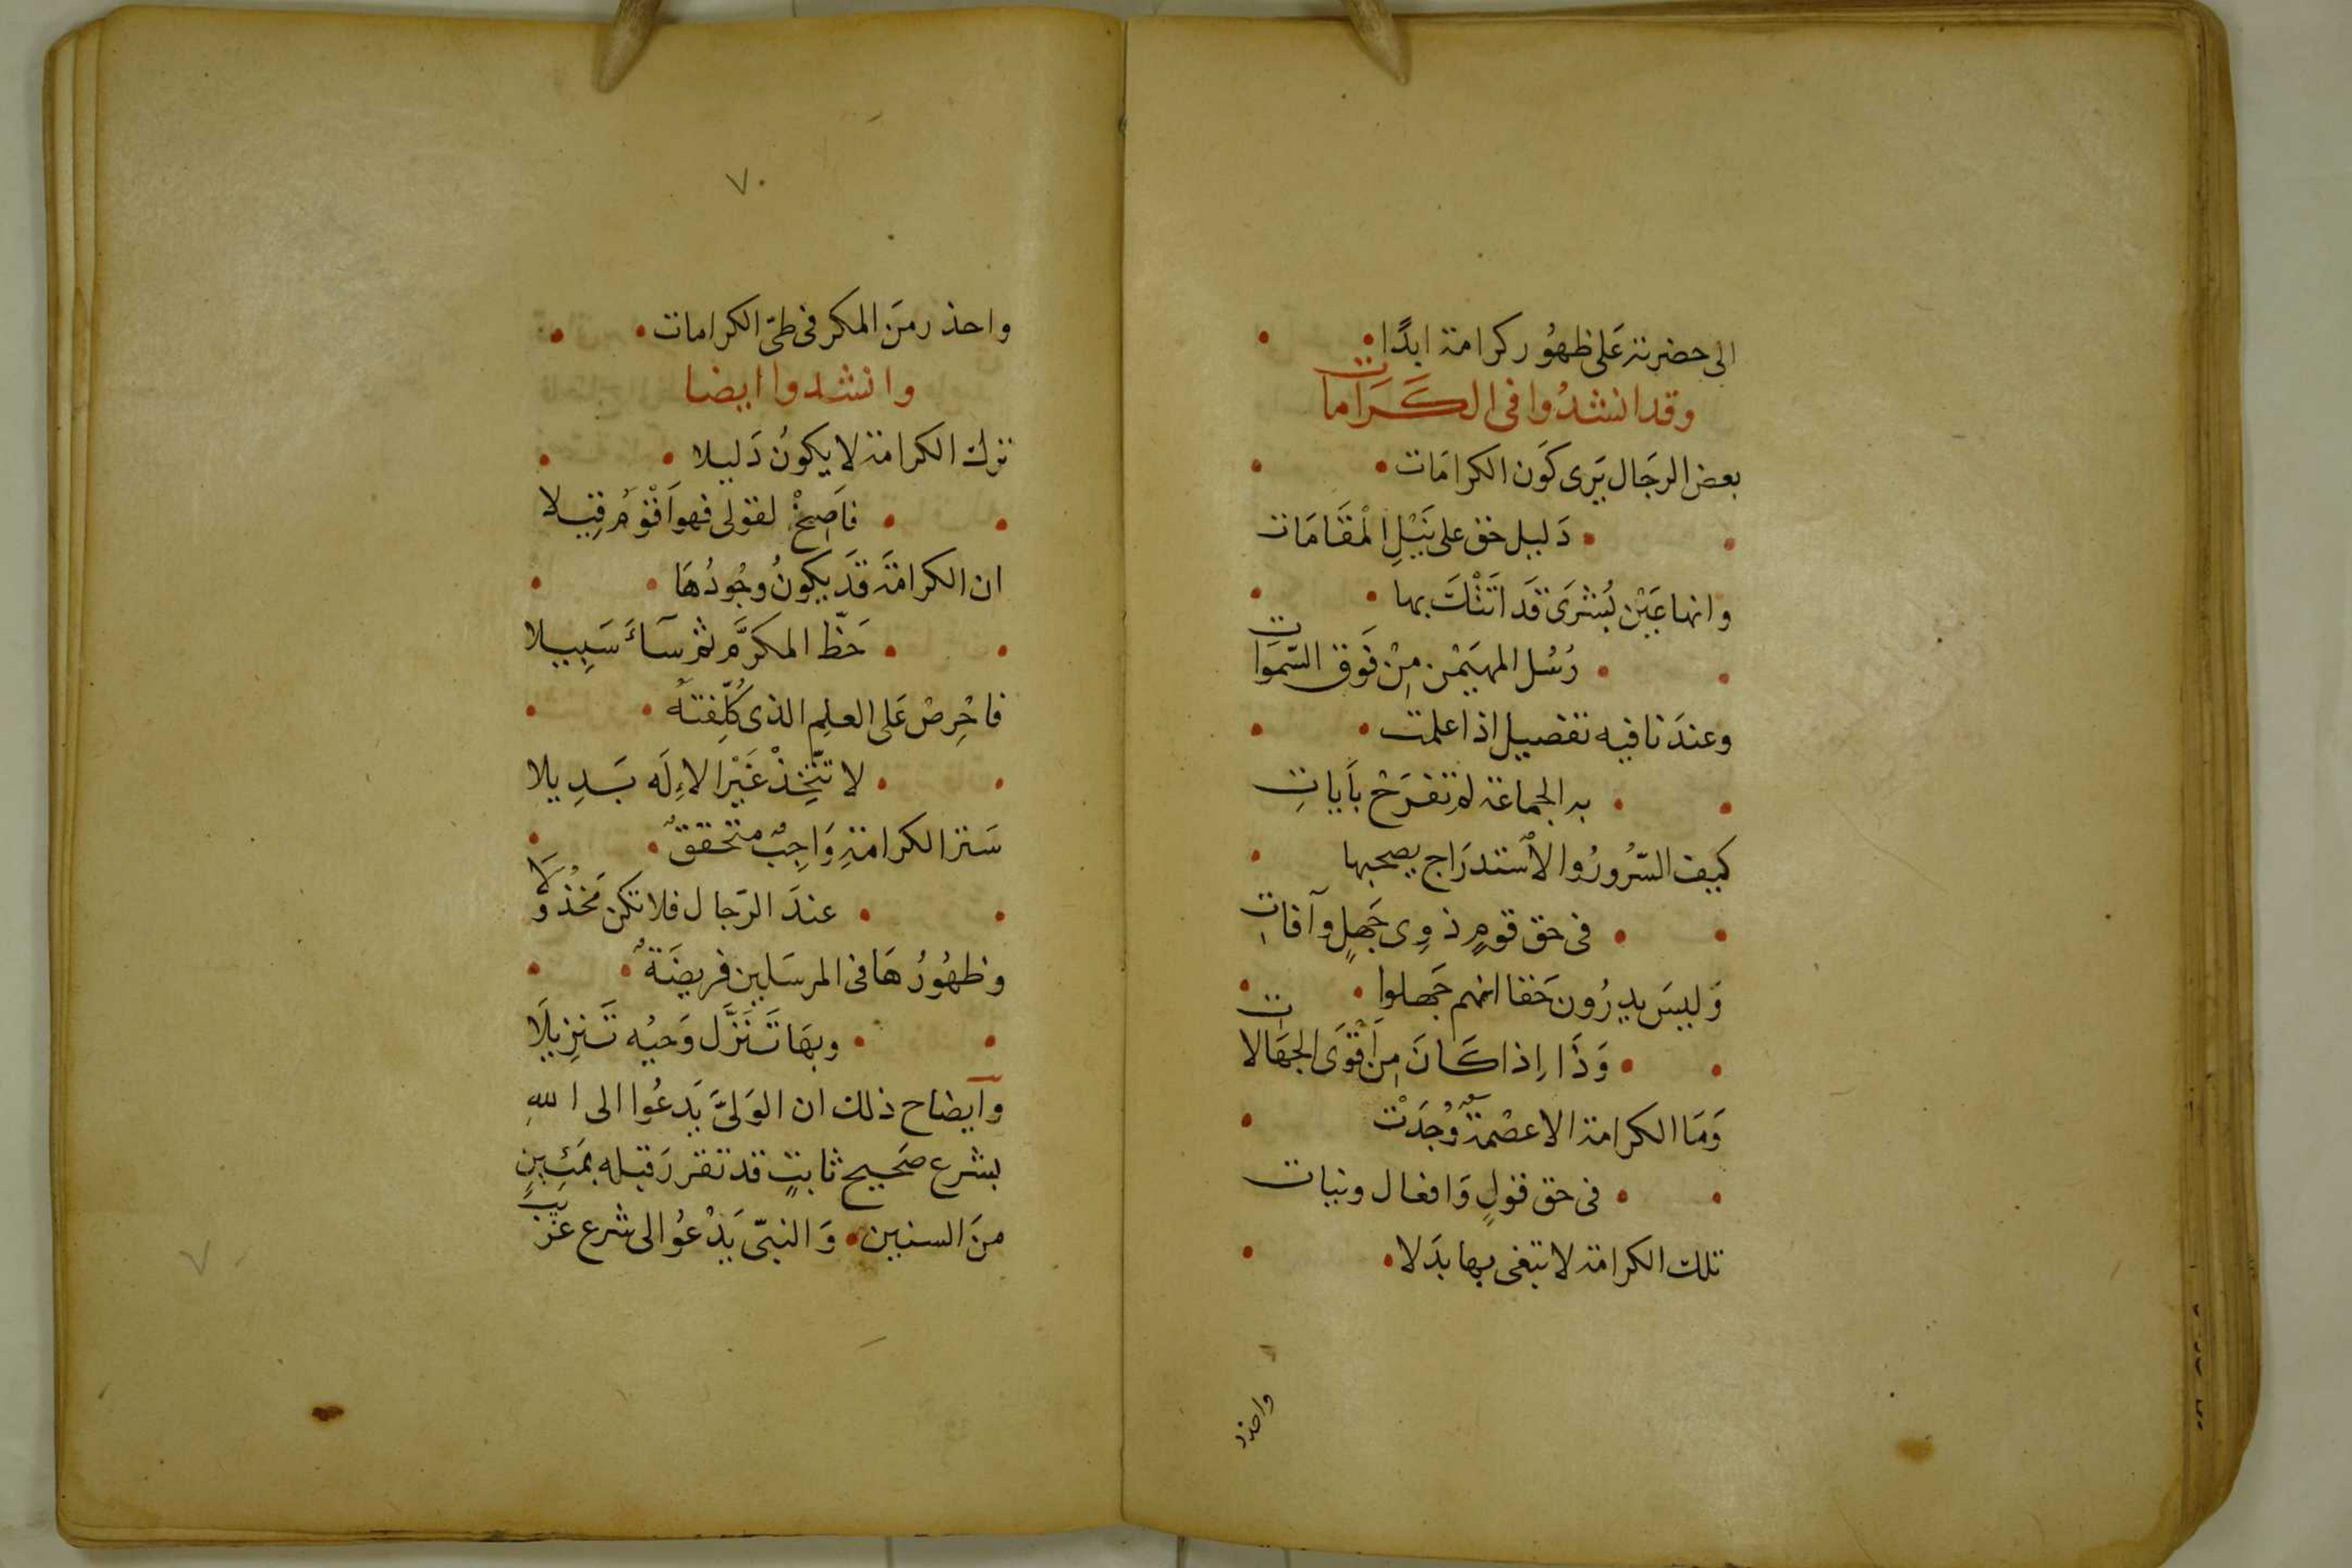 الى حضرته عَلى ظهُور كرامة ابدًا
وقد انشدُوا فى الكَرَامات
بعض الرجَال يَرى كَون الكرامَات
دَليل حق على نَيْلِ الْمقَامَات
وانها عَيْن بُشرَى قَد اَتَتْكَ بها
رُسُل المهيَمْن مِنْ فَوق السّموَات
وعندَنا فيه تفصيل اذا علمت
به الجماعة لم تفرَحْ بآيَاتِ
كيف السّرُورُ والاُستدرَاج يصحبها
فى حق قومٍ ذوِى جَهلٍ وآفاتِ
وَليسَ يدرُون حَقا انهم جَهلوا
وَذَا اِذا كَانَ مِن اَقْوَى الجهَالات
وَمَا الكرامة الا عصْمةٌ وُجدَتْ
فى حق قولٍ وَافعال ونيات
تلك الكرامة لا تبغى بها بدَلا
واحذر
٧٠
واحذر منَ المكر فى طىّ الكرامات
وانشدوا ايضا
ترك الكرامة لا يكونُ دَليلا
فاَصِخْ لقولى فهو اَقْوَمُ قِيلا
ان الكرامَة قَد يكونُ وجُودُهَا
حَظّ المكرَّم ثم سَآءَ سَبِيلا
فاحْرِصْ عَلى العلِم الذى كُلِّفتهُ
لا تتّخِذْ غَيْر الاِلَه بَدِيلا
سَتر الكرامةِ وَاجِبٌ متحققٌ
عندَ الرّجال فلا تكن مَخْذُولَا
وظهُورُهَا فى المرسَلين فريضَةٌ
وبهَا تَنَزَّل وَحيُه تَنزِيلَا
وايضاح ذلك ان الوَلىَّ يَدعُوا الى اللهِ
بشرع صَحيح ثابتٍ قد تقرر قبله بمَئِينٍ
منَ السنين وَالنبىّ يَدْعُوا الى شرع غَريبٍ
٧